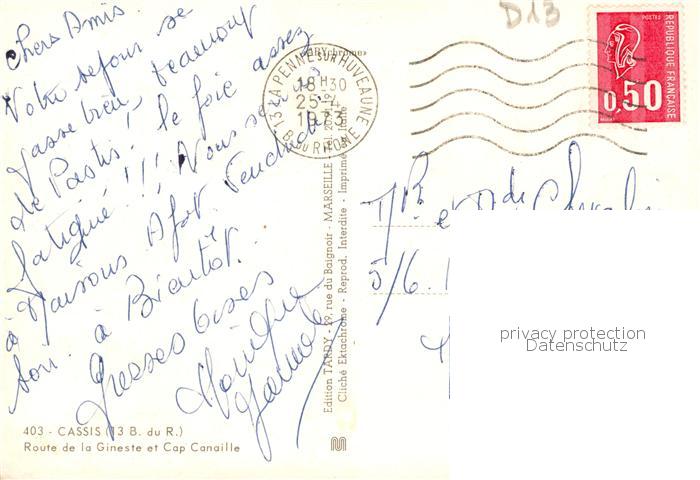 Chers Amis.
Notre séjour se
passe bien, beaucoup
de Pastis, le foie assez
fatigué!!! Nous serons
à Maisons Alfort Vendredi
soir. à Bientôt.
Grosses bises
Monique
403 - CASSIS (13 B. du R.)
Route de la Gineste et Cap Canaille
Edition TARDY - 29, rue du Baignoir - MARSEILLE
Cliché Ektachrome - Reprod. Interdite - Imprimé
D13
13 LA PENNE SUR HUVEAUNE
18H30
25-4
1973
B. DU RHONE
POSTES
REPUBLIQUE FRANÇAISE
0,50
Mr et Mme
5/6.
privacy protection
Datenschutz